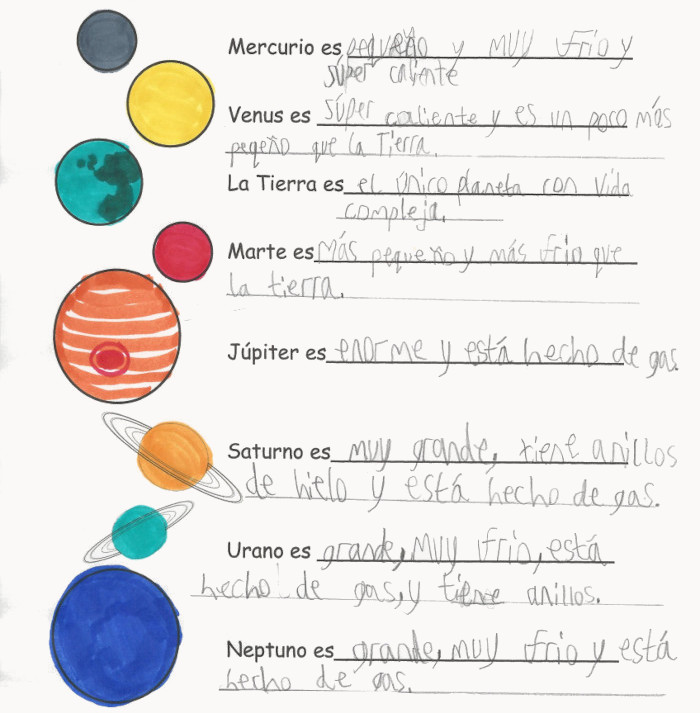 Mercurio es pequeño y muy frio y
súper caliente
Venus es súper caliente y es un poco más
peqeño que la Tierra.
La Tierra es el único planeta con vida
compleja.
Marte es más pequeño y más frio que
la tierra.
Júpiter es enorme y está hecho de gas.
Saturno es muy grande, tiene anillos
de hielo y está hecho de gas.
Urano es grande, muy frio, está
hecho de gas, y tiene anillos.
Neptuno es grande, muy frio y está
hecho de gas.